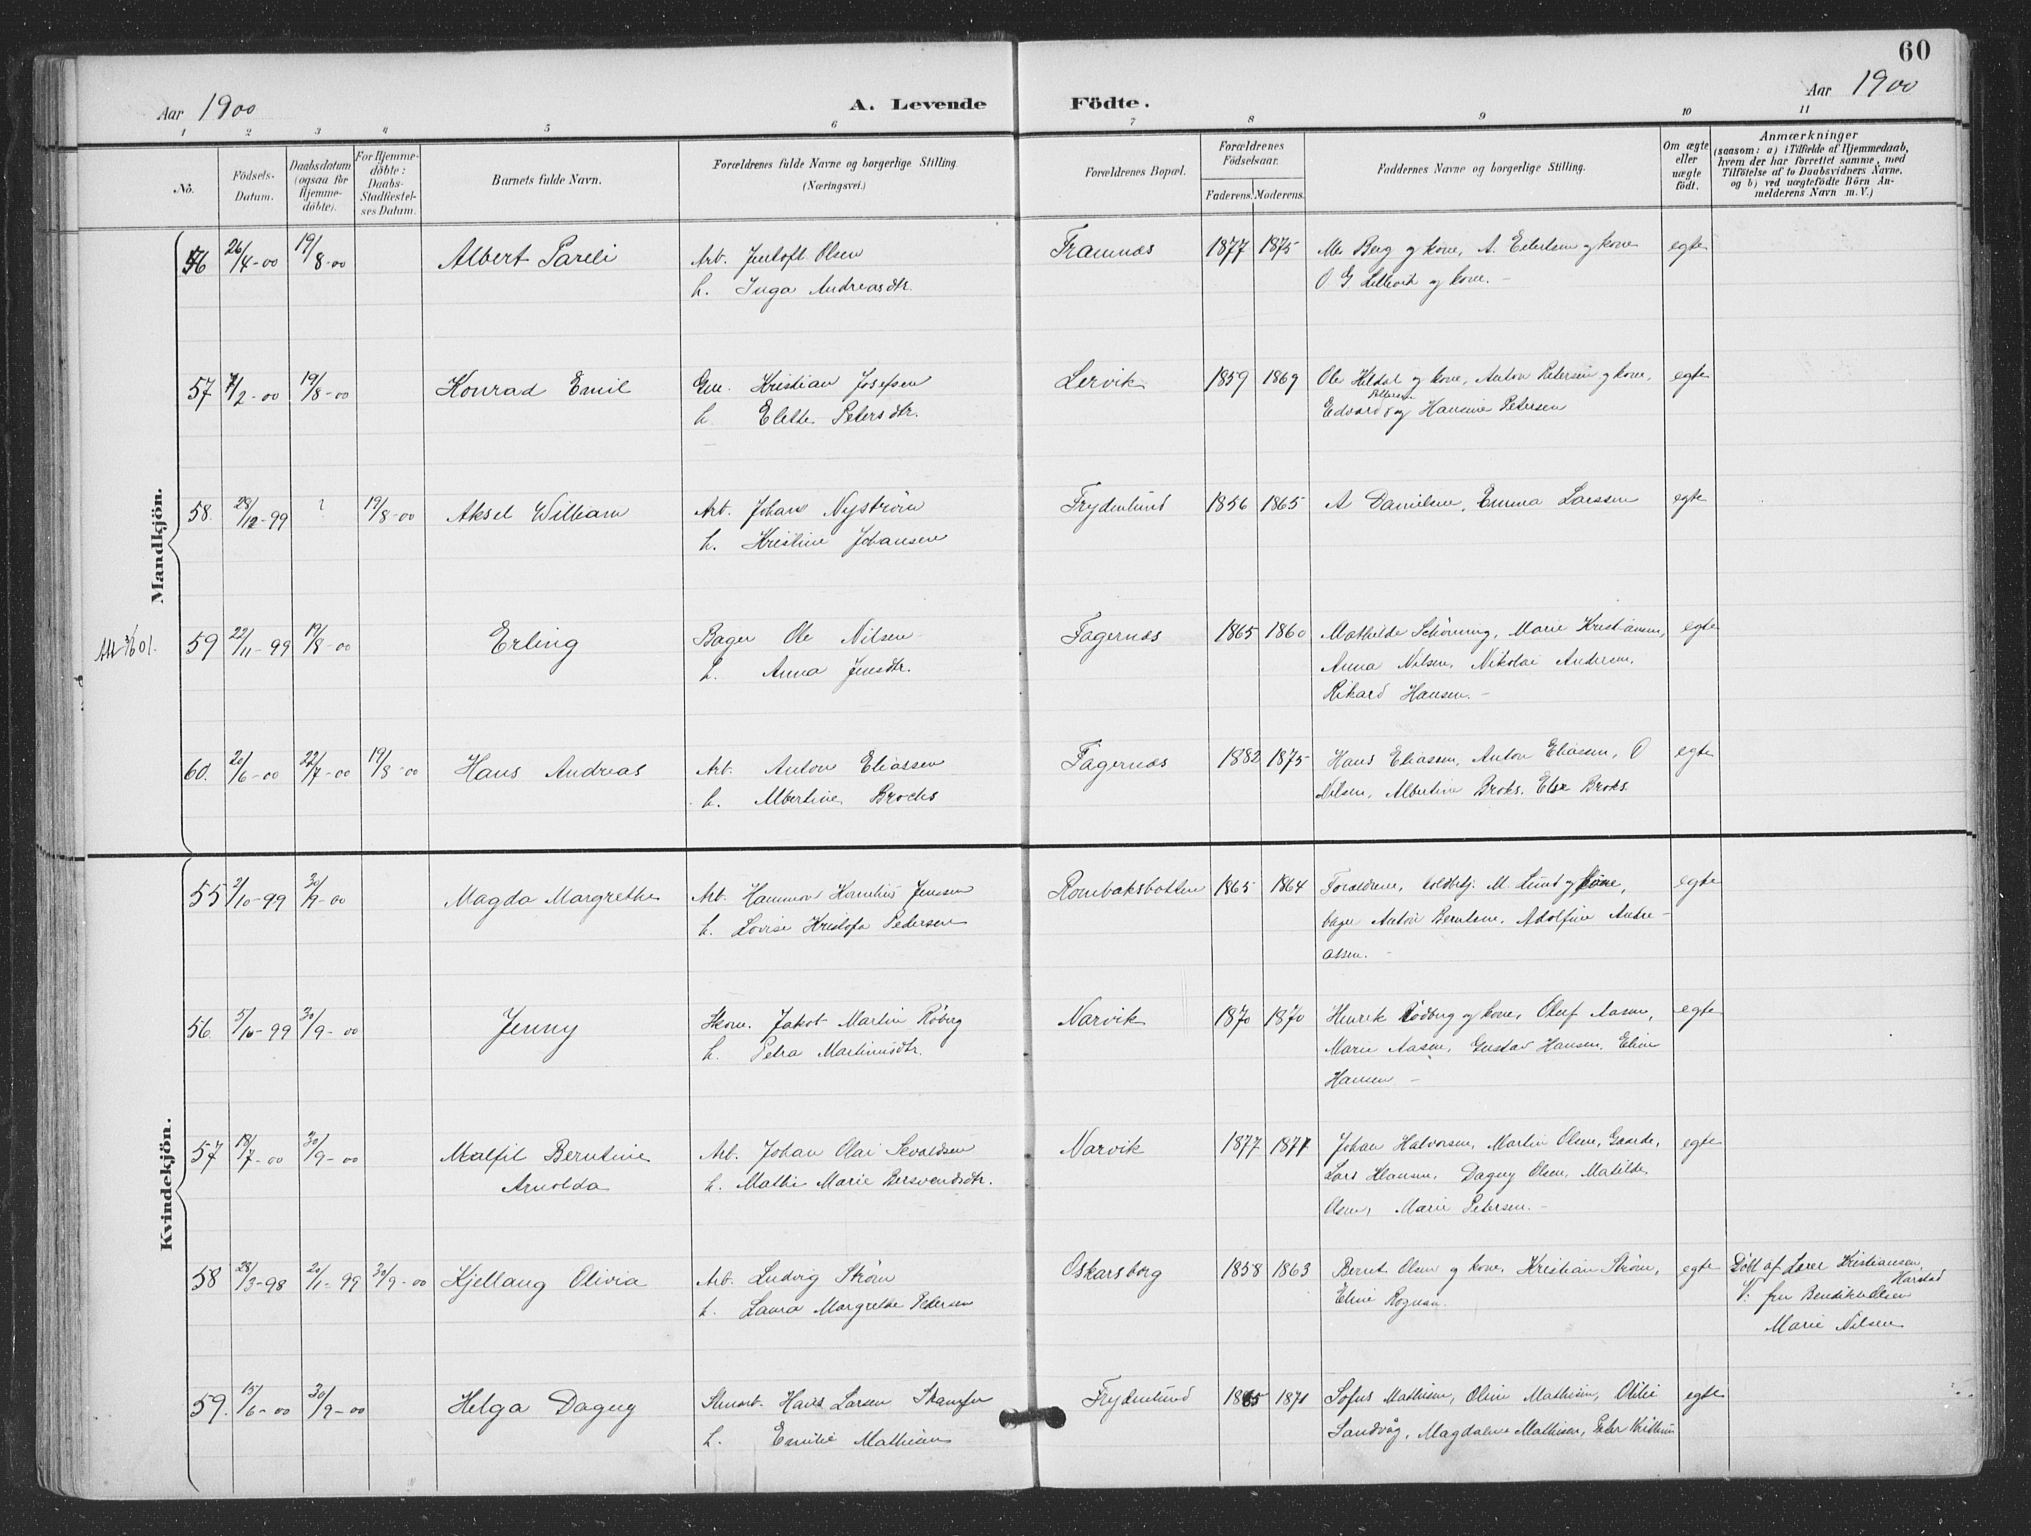 60
Aar 1900
A. Levende Födte.
Aar 1900
1 2 3 4 5 6 7 8 9 10 11
No.
Födsels-Datum.
Daabsdatum (ogsaa for Hjemme-døbte).
For Hjemme-døbte: Daabs-Stadfæstel-ses Datum.
Barnets fulde Navn.
Forældrenes fulde Navne og borgerlige Stilling. (Næringsvei.)
Forældrenes Bopæl.
Forældrenes Födselsaar.
Faderens. Moderens.
Faddernes Navne og borgerlige Stilling.
Om ægte eller uægte født.
Anmærkninger
(saasom: a) i Tilfælde af Hjemmedaab,
hvem der har forrettet samme, med
Tilföielse af to Daabsvidners Navne,
og b) ved uægtefödte Börn An-
melderens Navn m. V.)
Mandkjön.
56 26/4-00 19/8-00 Albert Pareli Arb. Jentoft Olsen Framnæs 1877 1875 Berg og kone, A. Edertsen og kone egte
h. Inga Andreasdtr. O G og kone. -
57 7/2-00 19/8-00 Konrad Emil Kristian Josefsen Lervik 1859 1869 Ole Heldal og kone, Anton Petersen og kone, egte
h. Elette Petersdtr. Edvard og Hansine Petersen
58. 28/12-99 ? 19/8-00 Aksel William Arb. Johan Nystrøm Frydenlund 1856 1865 A Danielsen, Emma Larssen egte
h. Kristine Johansen
59 22/11-99 19/8-00 Erling Bager Ole Nilsen Fagernæs 1865 1860 Mathilde Schöning, Marie Kristiansen, egte
h. Anna Jensdtr. Anna Nilsen, Nikolai Andersen,
Rikard Hansen. -
60. 20/6-00 22/7-00 19/8-00 Hans Andreas Arb. Anton Eliassen Fagernæs 1882 1875 Hans Eliassen, Anton Eliassen, O egte
h. Albertine Brochs Nilsen, Albertine Broks, Else Broks.
Kvindekjön.
55 2/10-99 30/9-00 Magda Margrethe Arb. Hammon Kornelius Jenssen Rombaksbotten 1865 1864 Forældrene, M. Lund og kone, egte
h. Lovise Kristofa Pedersen bager Anton Berntsen, Adolfine Andre-
assen. -
56. 5/10-99 30/9-00 Jenny Skom. Jakob Martin Röberg Narvik 1870 1870 Henrik Rödberg og kone, Oluf Aasen, egte
h. Petra Martinusdtr. Marie Aasen, Gustav Hansen, Eline
Hansen -
57 18/7-00 30/9-00 Malfil Berntine Arb. Johan Olai Sevaldsen Narvik 1877 1877 Johan Halvorsen, Martin Olsen, Gaarde, egte
Arnolda h. Mathi Marie Bersvendsdtr. Lars Hansen, Dagny Olsen, Matilde
Olsen, Marie Petersen. -
58 28/3-98 20/11-99 30/9-00 Kjellaug Olivia Arb. Ludvig Strøm Oskarsborg 1858 1863 Bernt Olsen og kone, Kristian Strøm, egte Döbt af Lærer Kristiansen,
Harstad
h. Laura Margrethe Pedersen Eline Rognan. V: fru Bendikte Olsen
Marie Nilsen
59. 15/6-00 30/9-00 Helga Dagny Stenarb. Hans Larsen Skamfer Frydenlund 1865 1871 Sofus Mathisen, Oline Mathisen, Otilie egte
h. Emilie Mathisen Sandvåg, Magdalene Mathisen, Peter